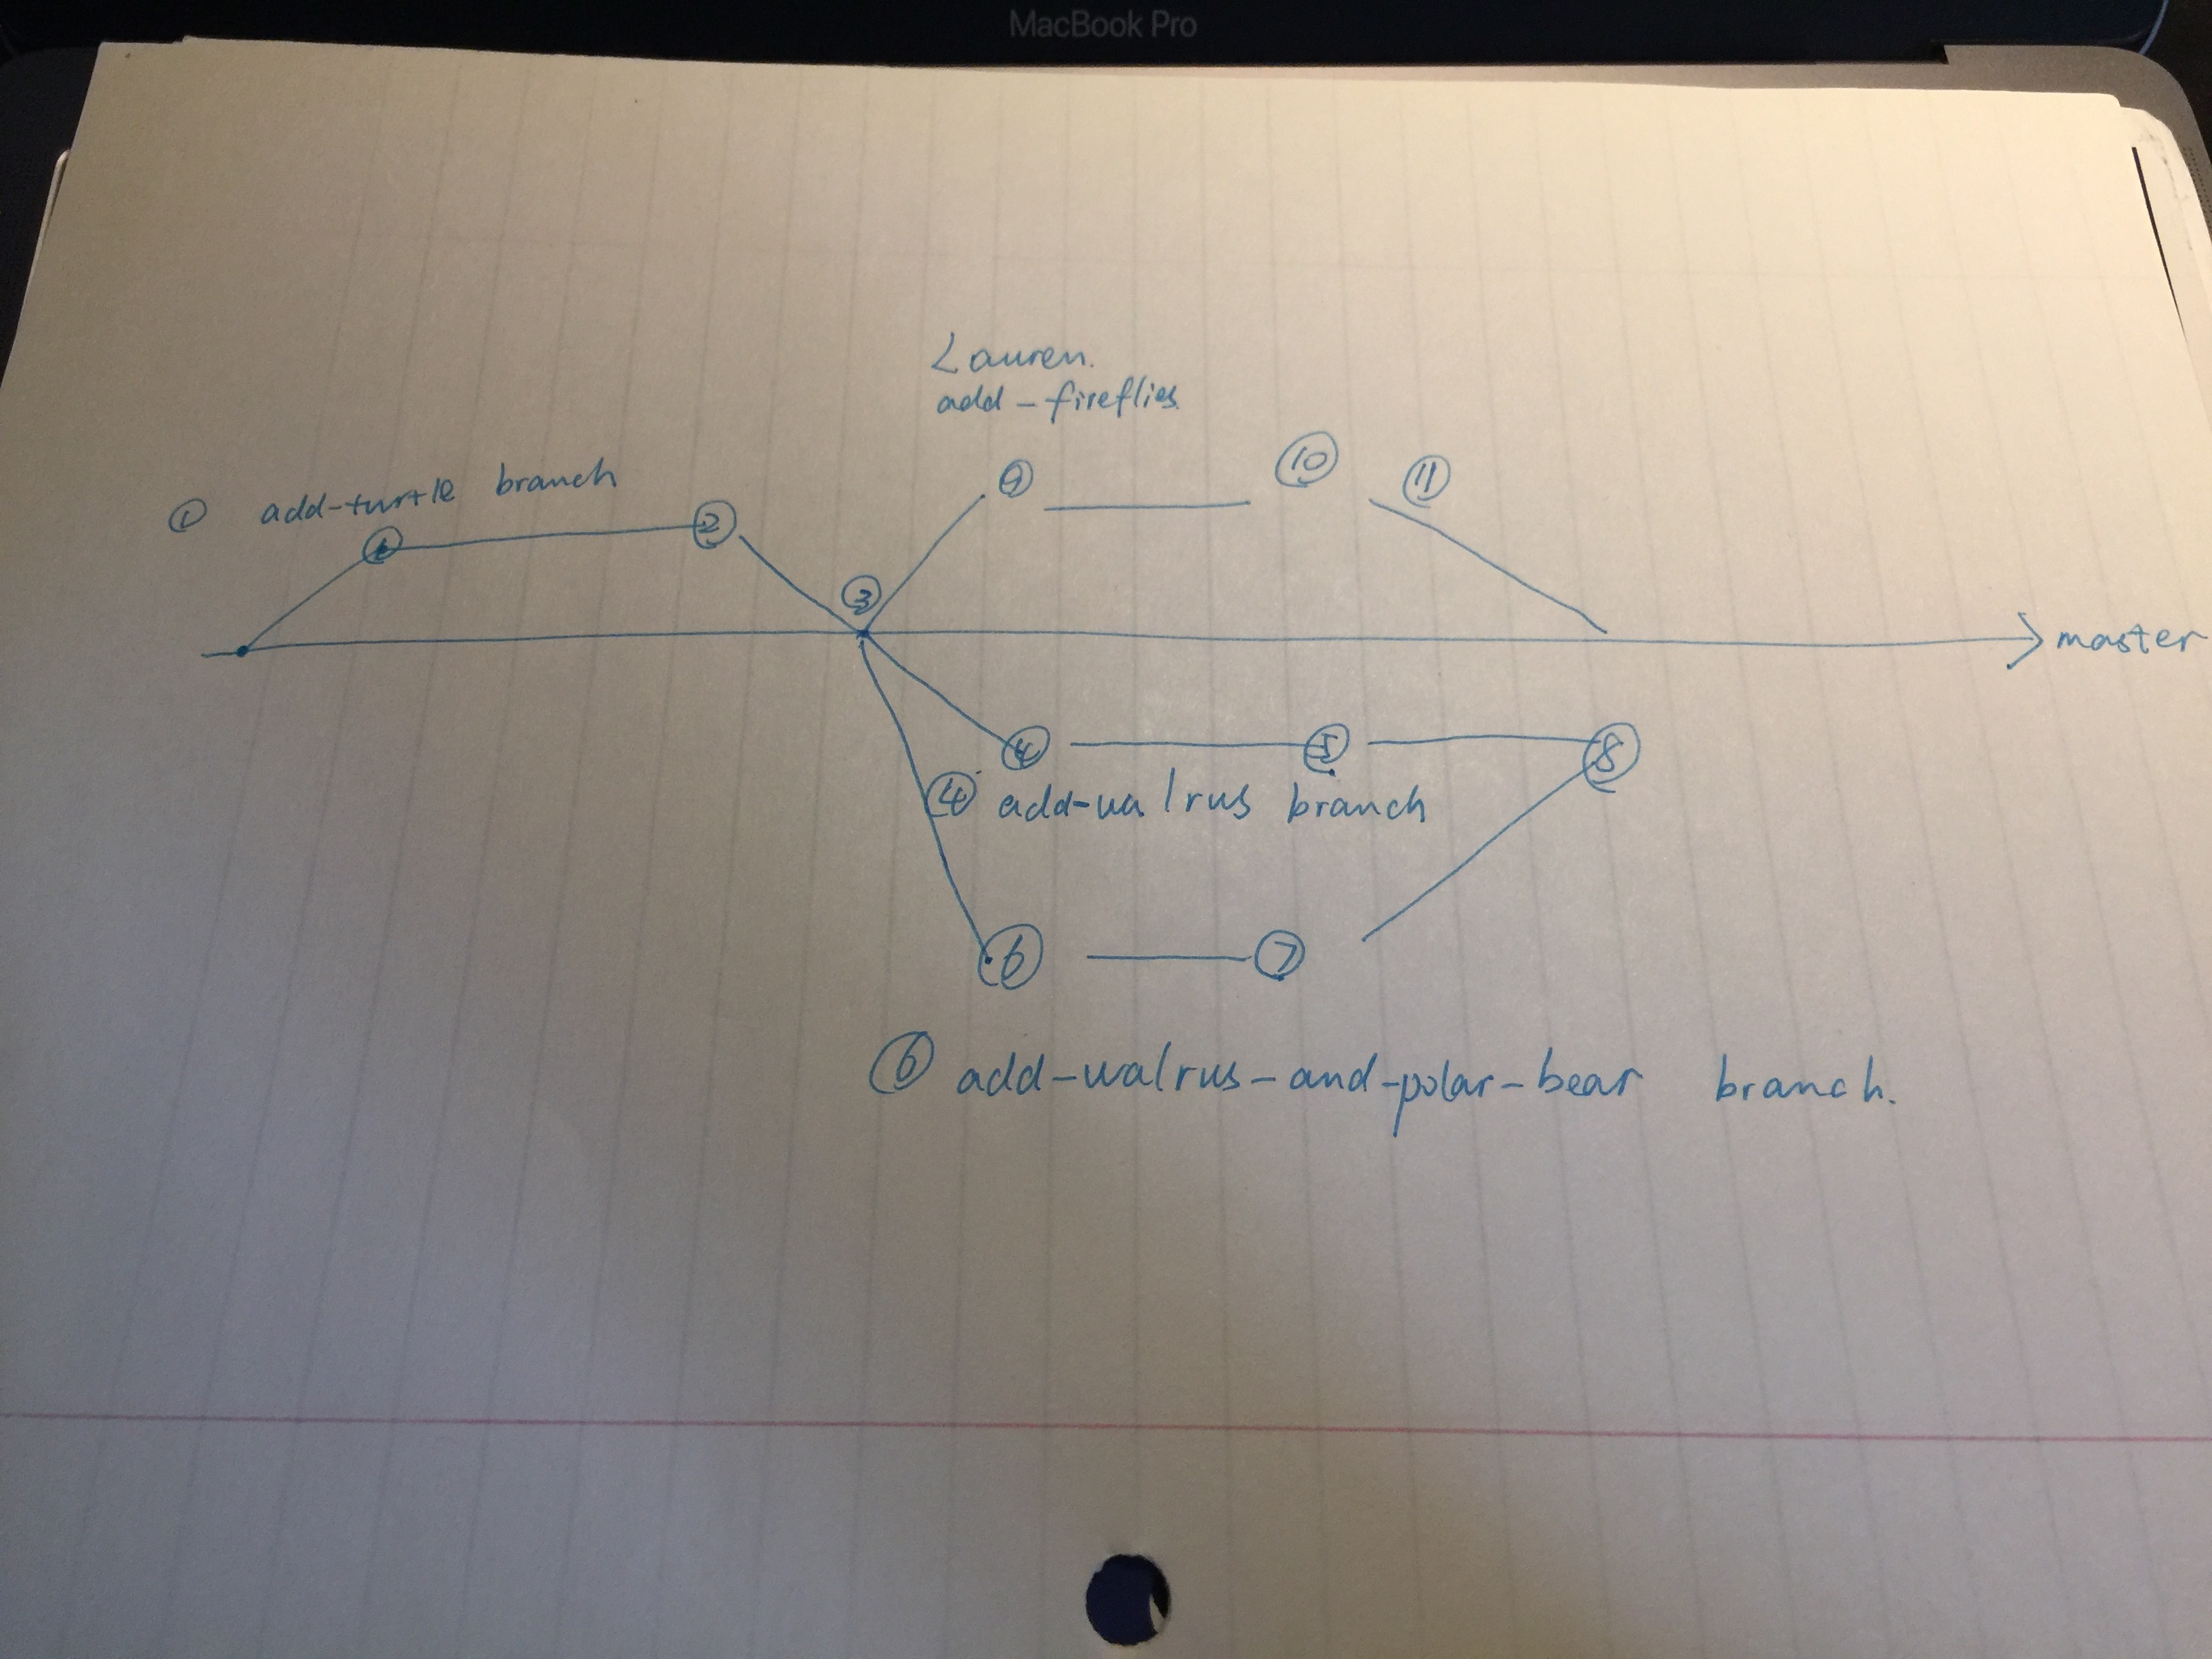 MacBook Pro
Lauren.
add-fireflies
① add-turtle branch
① ② ③ ⑨ ⑩ ⑪
master
④ ⑤ ⑧
④ add-walrus branch
⑥ ⑦
⑥ add-walrus-and-polar-bear branch.